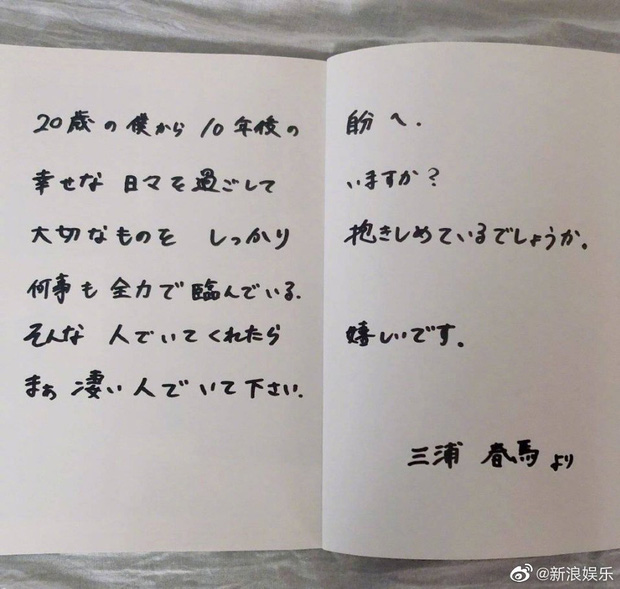 20歳の僕から10年後の 自分へ.
幸せな日々を過ごして いますか?
大切なものを しっかり 抱きしめているでしょうか。
何事も全力で臨んでいる.
そんな 人でいてくれたら 嬉しいです。
まぁ 凄い人でいて下さい.
三浦 春馬より
@新浪娱乐